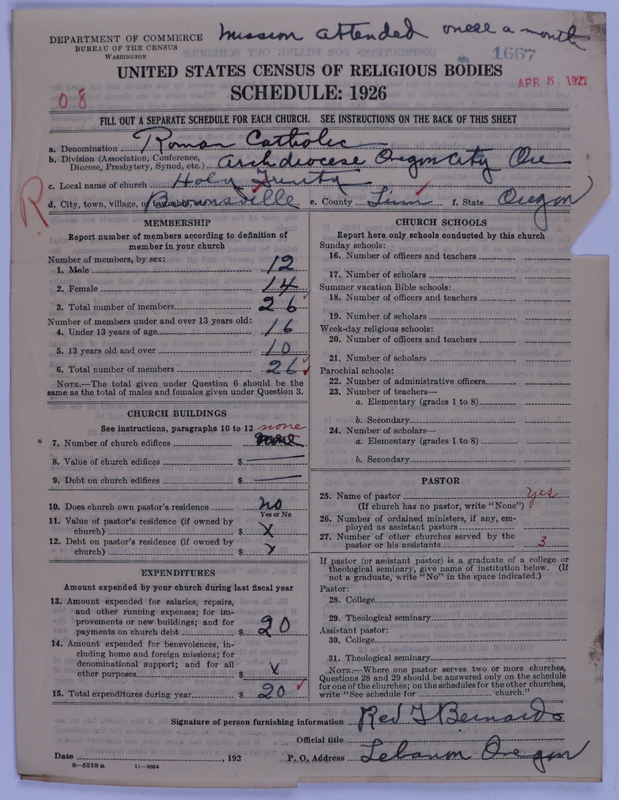 Mission attended once a month
DEPARTMENT OF COMMERCE
BUREAU OF THE CENSUS
WASHINGTON
1667
UNITED STATES CENSUS OF RELIGIOUS BODIES
APR 5 192
SCHEDULE: 1926
08
FILL OUT A SEPARATE SCHEDULE FOR EACH CHURCH. SEE INSTRUCTIONS ON THE BACK OF THIS SHEET
a. Denomination Roman Catholic
b. Division (Association, Conference, Diocese, Presbytery, Synod, etc.) Archdiocese Oregon City Ore
c. Local name of church Holy Trinity
d. City, town, village, or Brownsville e. County Linn f. State Oregon
R
MEMBERSHIP
Report number of members according to definition of
member in your church
Number of members, by sex:
1. Male 12
2. Female 14
3. Total number of members 26
Number of members under and over 13 years old:
4. Under 13 years of age 16
5. 13 years old and over 10
6. Total number of members 26
NOTE.—The total given under Question 6 should be
same as the total of males and females given under Question 3.
CHURCH BUILDINGS
See instructions, paragraphs 10 to 12 none
* 7. Number of church edifices
8. Value of church edifices $
9. Debt on church edifices $
10. Does church own pastor's residence no
Yes or No
11. Value of pastor's residence (if owned by
church) $ X
12. Debt on pastor's residence (if owned by
church) $
EXPENDITURES
Amount expended by your church during last fiscal year
13. Amount expended for salaries, repairs,
and other running expenses; for im-
provements or new buildings; and for
payments on church debt $ 20
14. Amount expended for benevolences, in-
cluding home and foreign missions; for
denominational support; and for all
other purposes $
15. Total expenditures during year $ 20
CHURCH SCHOOLS
Report here only schools conducted by this church
Sunday schools:
16. Number of officers and teachers
17. Number of scholars
Summer vacation Bible schools:
18. Number of officers and teachers
19. Number of scholars
Week-day religious schools:
20. Number of officers and teachers
21. Number of scholars
Parochial schools:
22. Number of administrative officers
23. Number of teachers—
a. Elementary (grades 1 to 8)
b. Secondary
24. Number of scholars—
a. Elementary (grades 1 to 8)
b. Secondary
PASTOR
25. Name of pastor yes
(If church has no pastor, write "None")
26. Number of ordained ministers, if any, em-
ployed as assistant pastors
27. Number of other churches served by the
pastor or his assistants 3
If pastor (or assistant pastor) is a graduate of a college or
theological seminary, give name of institution below. (If
not a graduate, write "No" in the space indicated.)
Pastor:
28. College
29. Theological seminary
Assistant pastor:
30. College
31. Theological seminary
NOTE.—Where one pastor serves two or more churches,
Questions 28 and 29 should be answered only on the schedule
for one of the churches; on the schedules for the other churches,
write "See schedule for church."
Signature of person furnishing information Bernards
Official title
Date , 192 P. O. Address Lebanon Oregon
8—5518a 11—9034